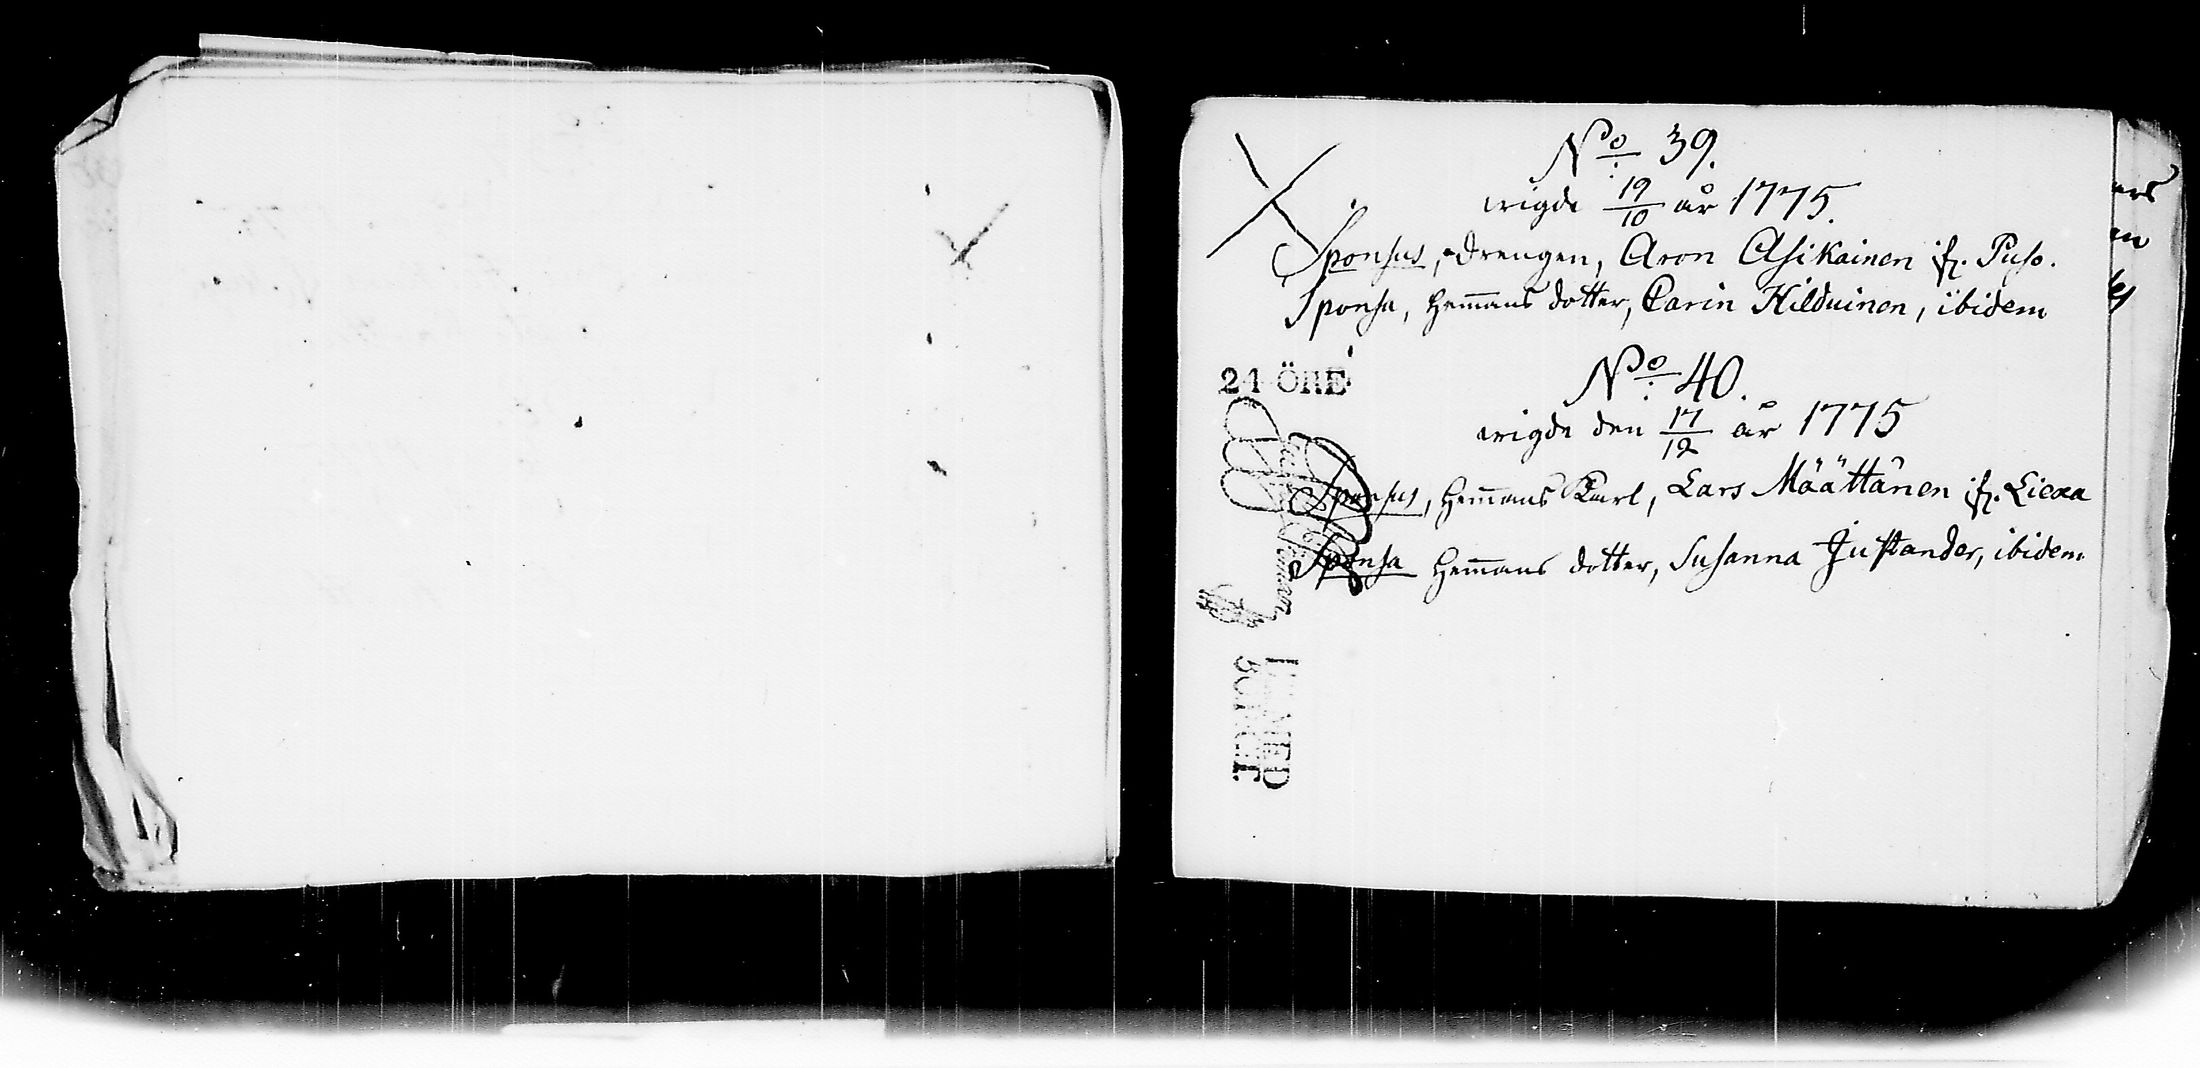 No 39.
wigde 19/10 år 1775.
Sponsus, drengen, Aron Asikainen if. Puso.
Sponsa, hem̄ans dotter, Carin Hilduinen, ibidem
No 40.
wigde den 17/12 år 1775
Sponsus, hem̄ans Karl, Lars Määttänen if. Liexa
Sponsa hem̄ans dotter, Susanna Justander, ibidem
21 ÖRE